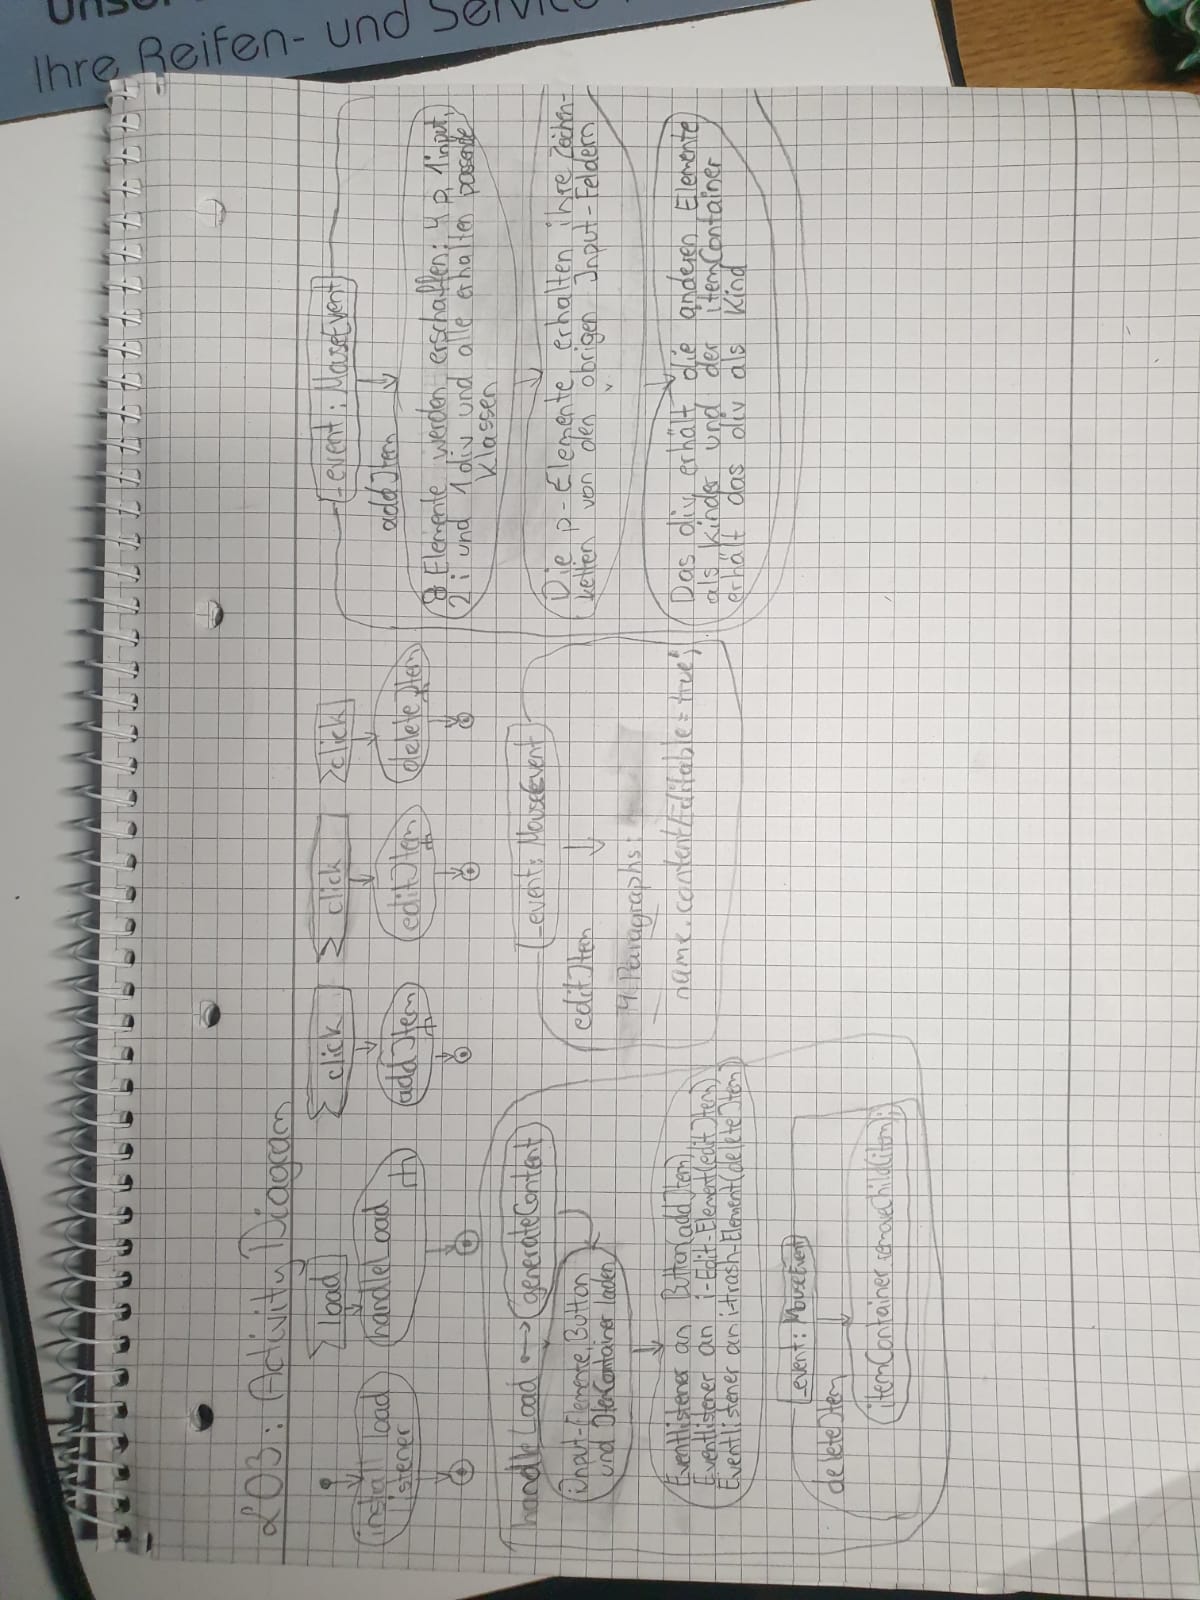 Unser
Ihre Reifen- und Service
L03: Activity Diagram
install load
listener
load
handleLoad
click
addItem
click
editItem
click
deleteItem
handleLoad
generateContent
Input-Elemente, Button
und ItemContainer laden
Eventlistener an Button(addItem)
Eventlistener an i-Edit-Element(editItem)
Eventlistener an i-trash-Element(deleteItem)
_event: MouseEvent
deleteItem
itemContainer.removeChild(item);
_event: MouseEvent
editItem
4 Paragraphs:
name.contentEditable="true";
_event: MouseEvent
addItem
8 Elemente werden erschaffen: 4 p, 1 input,
2 i und 1 div und alle erhalten passende
Klassen
Die p-Elemente erhalten ihre Zeichen-
ketten von den übrigen Input-Feldern
Das div erhält die anderen Elemente
als Kinder und der itemContainer
erhält das div als Kind